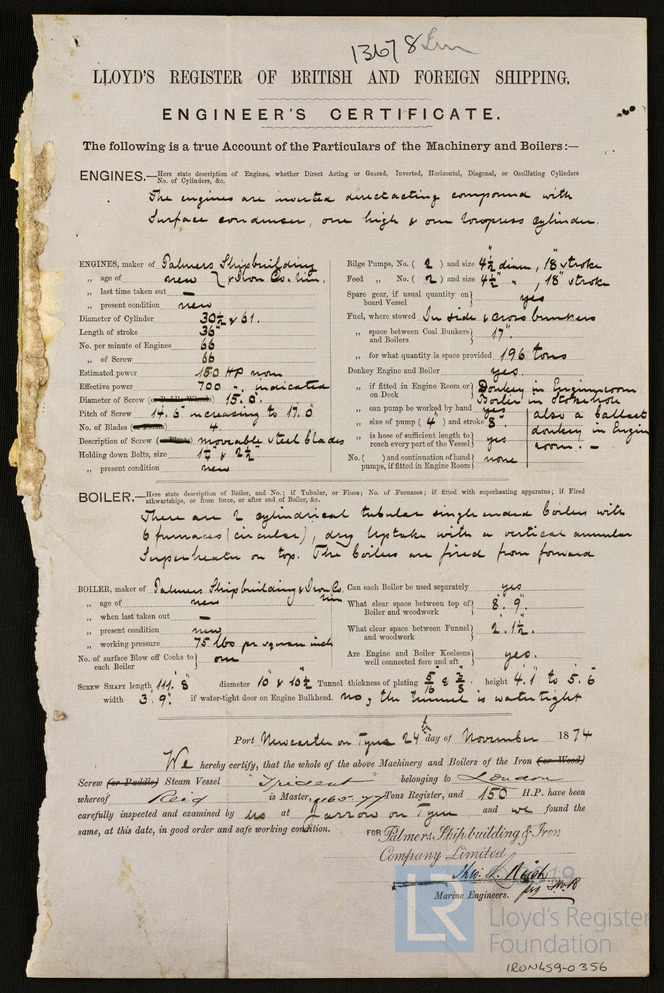 13678 Iron
LLOYD'S REGISTER OF BRITISH AND FOREIGN SHIPPING.
ENGINEER'S CERTIFICATE.
The following is a true Account of the Particulars of the Machinery and Boilers:—
ENGINES.—Here state description of Engines, whether Direct Acting or Geared, Inverted, Horizontal, Diagonal, or Oscillating Cylinders
No. of Cylinders, &c.
The engines are inverted direct acting compound with
Surface condenser, one high & one low press cylinder.
ENGINES, maker of Palmers Shipbuilding
„ age of new & Iron Co. Lim.
„ last time taken out —
„ present condition new
Diameter of Cylinder 30½ & 61.
Length of stroke 36"
No. per minute of Engines 66
„ of Screw 66
Estimated power 150 HP nom
Effective power 700 „ indicated
Diameter of Screw (or Paddle Wheel) 15.0"
Pitch of Screw 14.6" increasing to 17.0"
No. of Blades 4
Description of Screw moveable steel blades
Holding down Bolts, size & 2½"
„ present condition new
Bilge Pumps, No. ( 2 ) and size 4½" diam, 18" stroke
Feed „ No. ( 2 ) and size 4½" „, 18" stroke
Spare gear, if usual quantity on board Vessel yes
Fuel, where stowed In side & cross bunkers
„ space between Coal Bunkers and Boilers 17".
„ for what quantity is space provided 196 tons
Donkey Engine and Boiler yes.
„ if fitted in Engine Room or on Deck Donkey in Engine room
Boiler in Stokehole
„ can pump be worked by hand yes
„ size of pump ( 4 ) and stroke 8"
„ is hose of sufficient length to reach every part of the Vessel yes
No. ( ) and continuation of hand pumps, if fitted in Engine Room none
also a ballast
donkey in Engine
room. —
BOILER.—Here state description of Boiler, and No.; if Tubular, or Flues; No. of Furnaces; if fitted with superheating apparatus; if Fired
athwartships, or from force, or after end of Boiler, &c.
There are 2 cylindrical tubular single ended boilers with
6 furnaces (circular), dry uptake with a vertical annular
Superheater on top. The boilers are fired from forward
BOILER, maker of Palmers Shipbuilding & Iron Co.
Lim
„ age of new
„ when last taken out —
„ present condition new
„ working pressure 75 lbs per square inch
No. of surface Blow off Cocks to each Boiler one
Can each Boiler be used separately yes
What clear space between top of Boiler and woodwork 8'. 9".
What clear space between Funnel and woodwork 2'. 1½".
Are Engine and Boiler Keelsons well connected fore and aft yes.
SCREW SHAFT length 111'. 8" diameter 10" & 10½" Tunnel thickness of plating 5/16 & 3/8 height 4.1" to 5.6
width 3'. 9" if water-tight door on Engine Bulkhead. no, the tunnel is watertight
Port Newcastle on Tyne 24th day of November 1874
We hereby certify, that the whole of the above Machinery and Boilers of the Iron (or Wood)
Screw (or Paddle) Steam Vessel "Trident" belonging to London
whereof Reid is Master, Tons Register, and 150 H.P. have been
carefully inspected and examined by us at Jarrow on Tyne and we found the
same, at this date, in good order and safe working condition.
FOR Palmers Shipbuilding & Iron
Company Limited
Marine Engineers.
LR
Lloyd's Register
Foundation
IRON459-0356